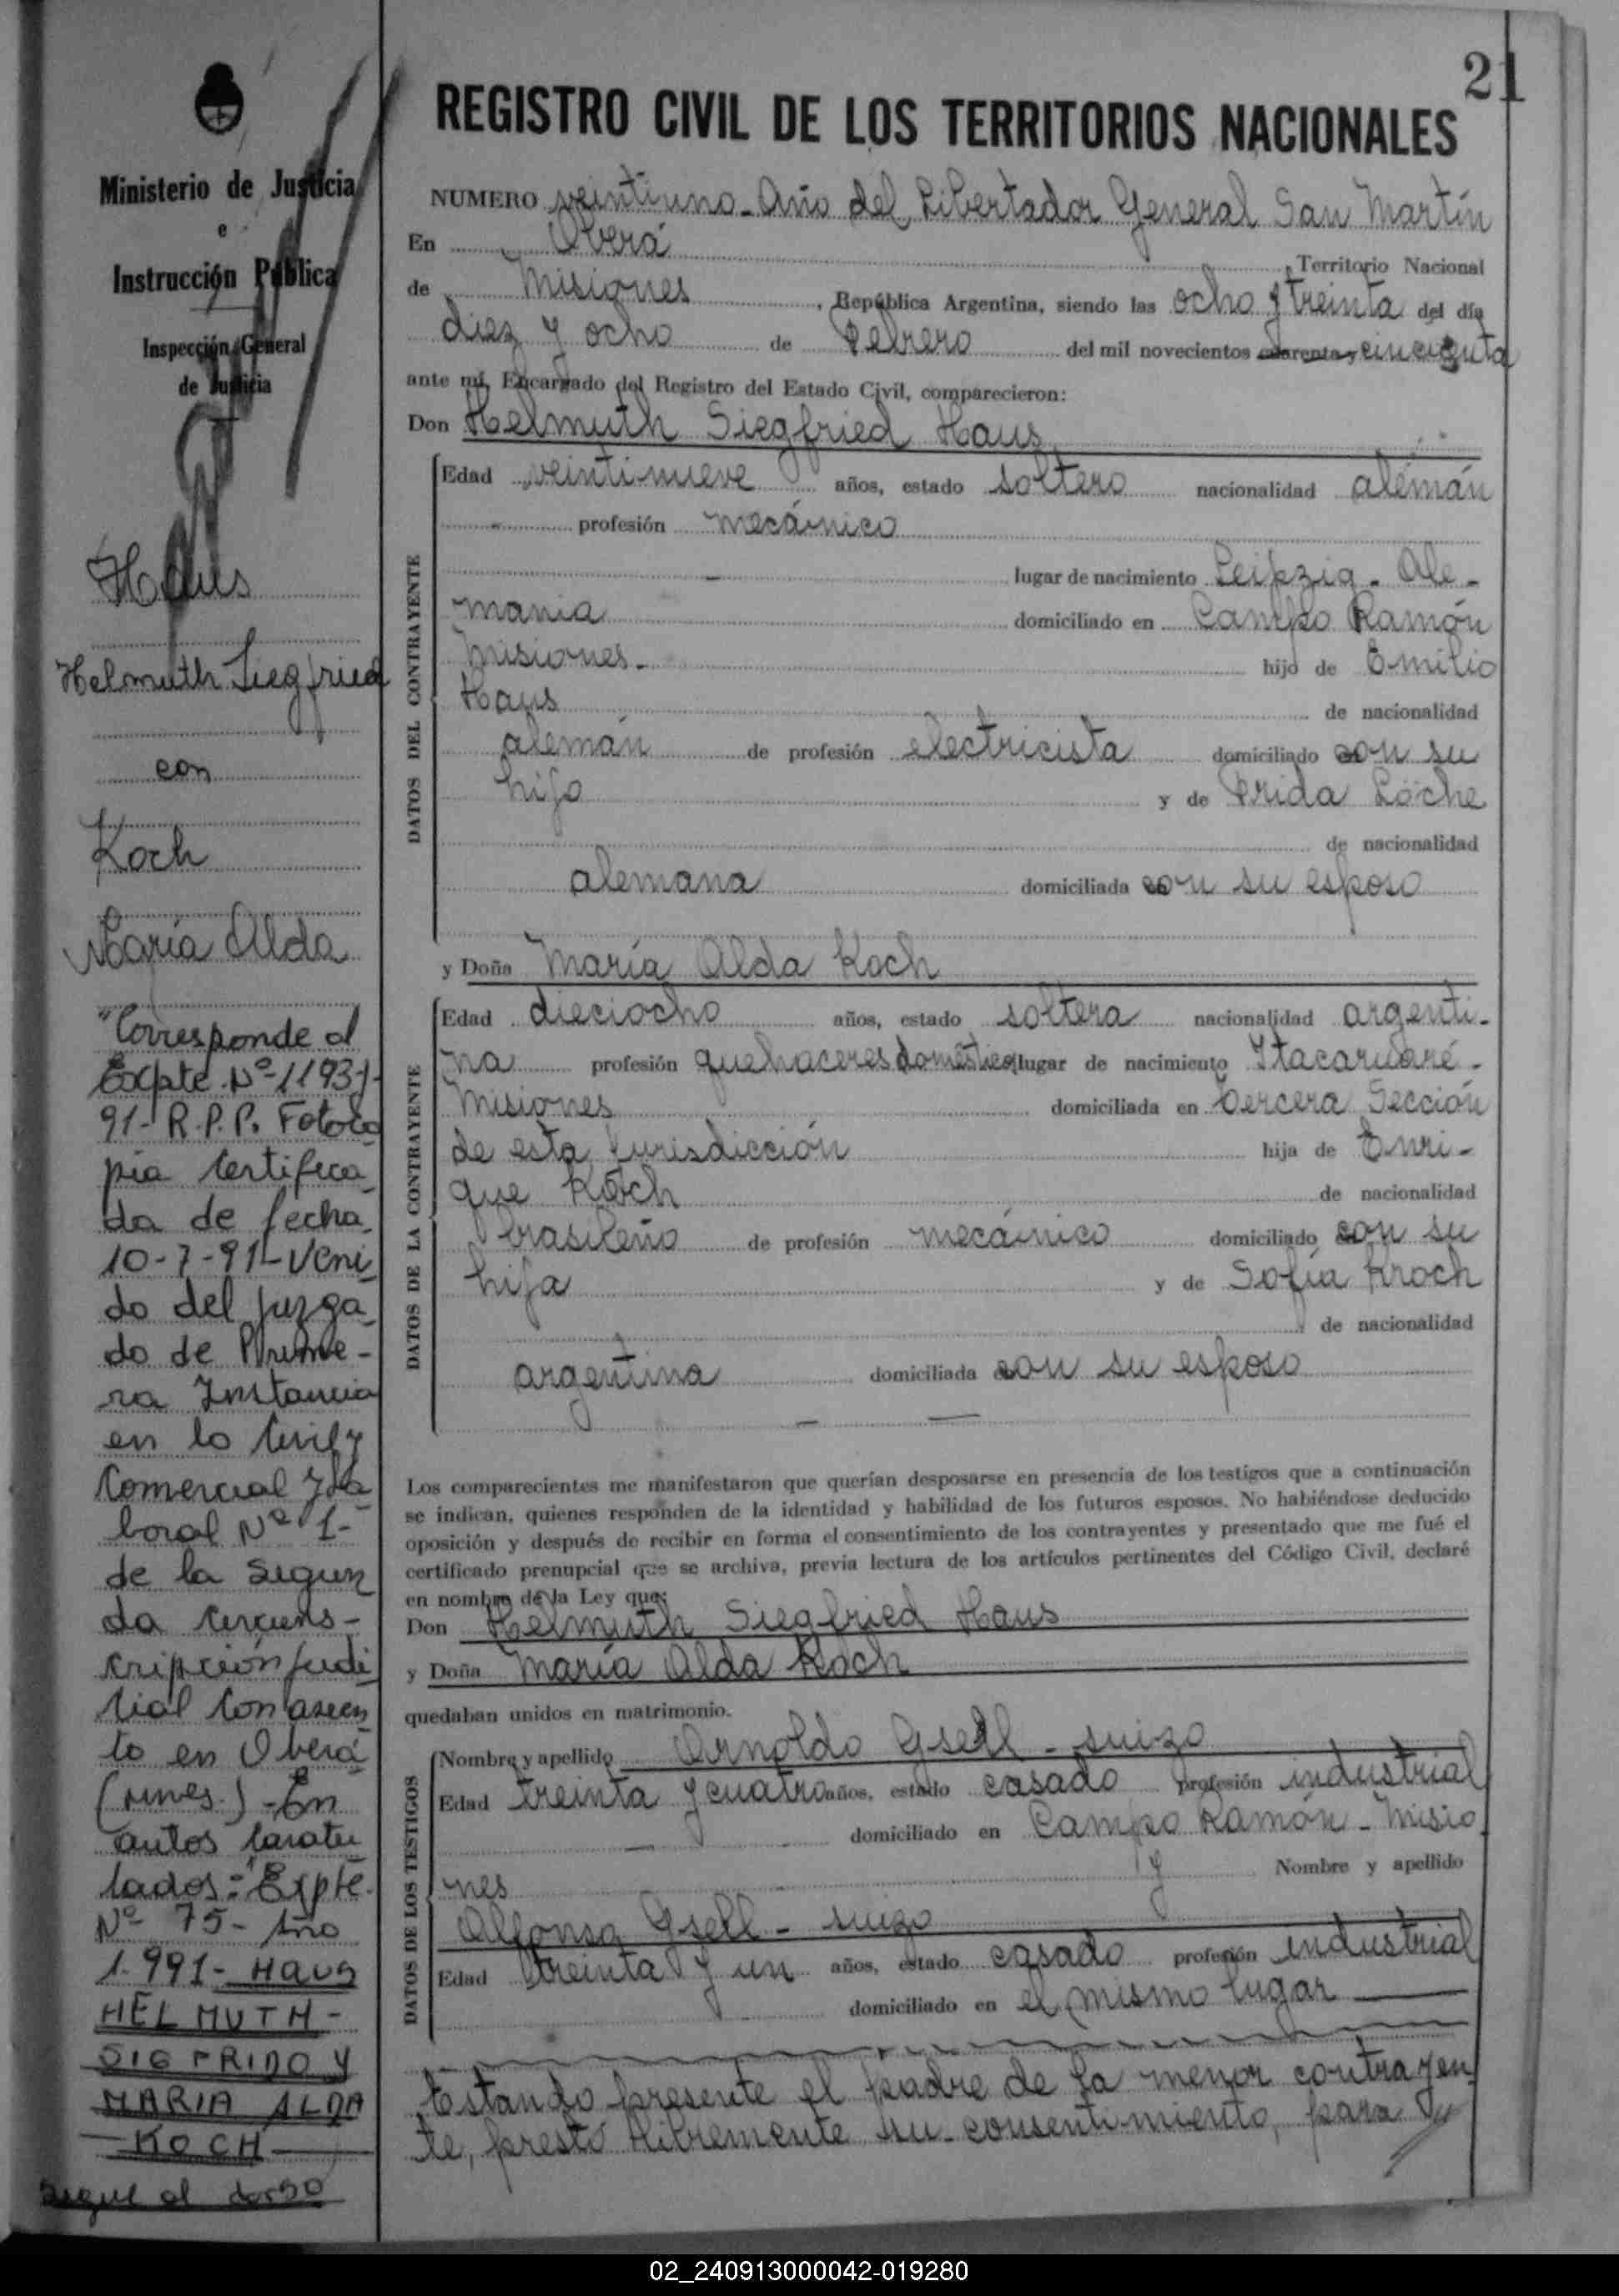 21
REGISTRO CIVIL DE LOS TERRITORIOS NACIONALES
Ministerio de Justicia
e
Instrucción Pública
Inspección General
de Justicia
Haus
Helmuth Siegfried
con
Koch
María Alda
"Corresponde al
Expte. Nº 1193-
91- R.P.P. Fotoco
pia Certifica
da de fecha
10-7-91- Veni
do del Juzga
do de Prime-
ra Instancia
en lo Civil y
Comercial y La
boral Nº 1-
de la Segun
da Circuns-
cripción Judi
cial con asien
to en Oberá
(Mnes.) - En
autos caratu
lados: "Expte.
Nº 75- Año
1.991- HAUS
HELMUTH-
SIGFRIDO Y
MARIA ALDA
KOCH
Sigue al dorso
NUMERO veintiuno - Año del Libertador General San Martín
En Oberá Territorio Nacional
de Misiones, República Argentina, siendo las ocho y treinta del día
diez y ocho de Febrero del mil novecientos cuarenta y cincuenta
ante mí, Encargado del Registro del Estado Civil, comparecieron:
Don Helmuth Siegfried Haus
DATOS DEL CONTRAYENTE
Edad veintinueve años, estado soltero nacionalidad alemán
profesión mecánico
lugar de nacimiento Leipzig - Ale-
mania domiciliado en Campo Ramón
Misiones - hijo de Emilio
Haus de nacionalidad
alemán de profesión electricista domiciliado con su
hijo y de Frida Löche
de nacionalidad
alemana domiciliada con su esposo
y Doña María Alda Koch
DATOS DE LA CONTRAYENTE
Edad dieciocho años, estado soltera nacionalidad argenti-
na profesión quehaceres domésticos lugar de nacimiento Itacaruaré -
Misiones domiciliada en Tercera Sección
de esta jurisdicción hija de Enri-
que Koch de nacionalidad
brasileño de profesión mecánico domiciliado con su
hija y de Sofía Kroch
de nacionalidad
argentina domiciliada con su esposo
Los comparecientes me manifestaron que querían desposarse en presencia de los testigos que a continuación
se indican, quienes responden de la identidad y habilidad de los futuros esposos. No habiéndose deducido
oposición y después de recibir en forma el consentimiento de los contrayentes y presentado que me fué el
certificado prenupcial que se archiva, previa lectura de los artículos pertinentes del Código Civil, declaré
en nombre de la Ley que:
Don Helmuth Siegfried Haus
y Doña María Alda Koch
quedaban unidos en matrimonio.
DATOS DE LOS TESTIGOS
Nombre y apellido Arnoldo Gsell - suizo
Edad treinta y cuatro años, estado casado profesión industrial
domiciliado en Campo Ramón - Misio
nes y Nombre y apellido
Alfonso Gsell - suizo
Edad treinta y un años, estado casado profesión industrial
domiciliado en el mismo lugar
Estando presente el padre de la menor contrayen
te, prestó libremente su consentimiento, para
02_240913000042-019280